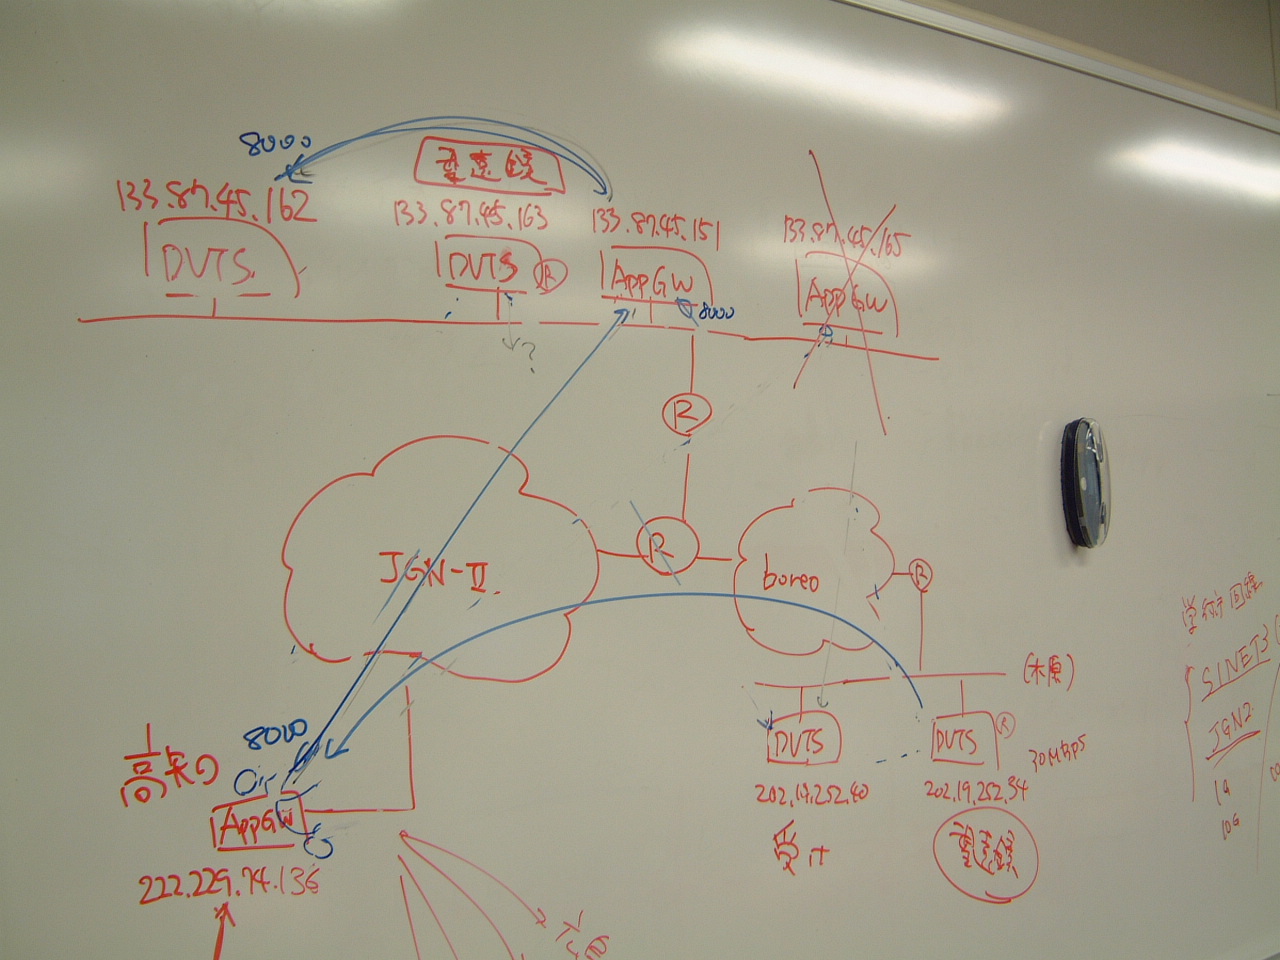 8000
133.87.45.162
133.87.45.163
133.87.45.151
133.87.45.165
DVTS
DVTS R
AppGW
AppGW
8000
?
R
JGN-II
R
boreo
R
学術回線
SINET3
JGN2
1G
10G
DVTS
DVTS R
30Mbps
202.19.252.40
202.19.252.34
受け
8000
高知
AppGW
222.229.74.136